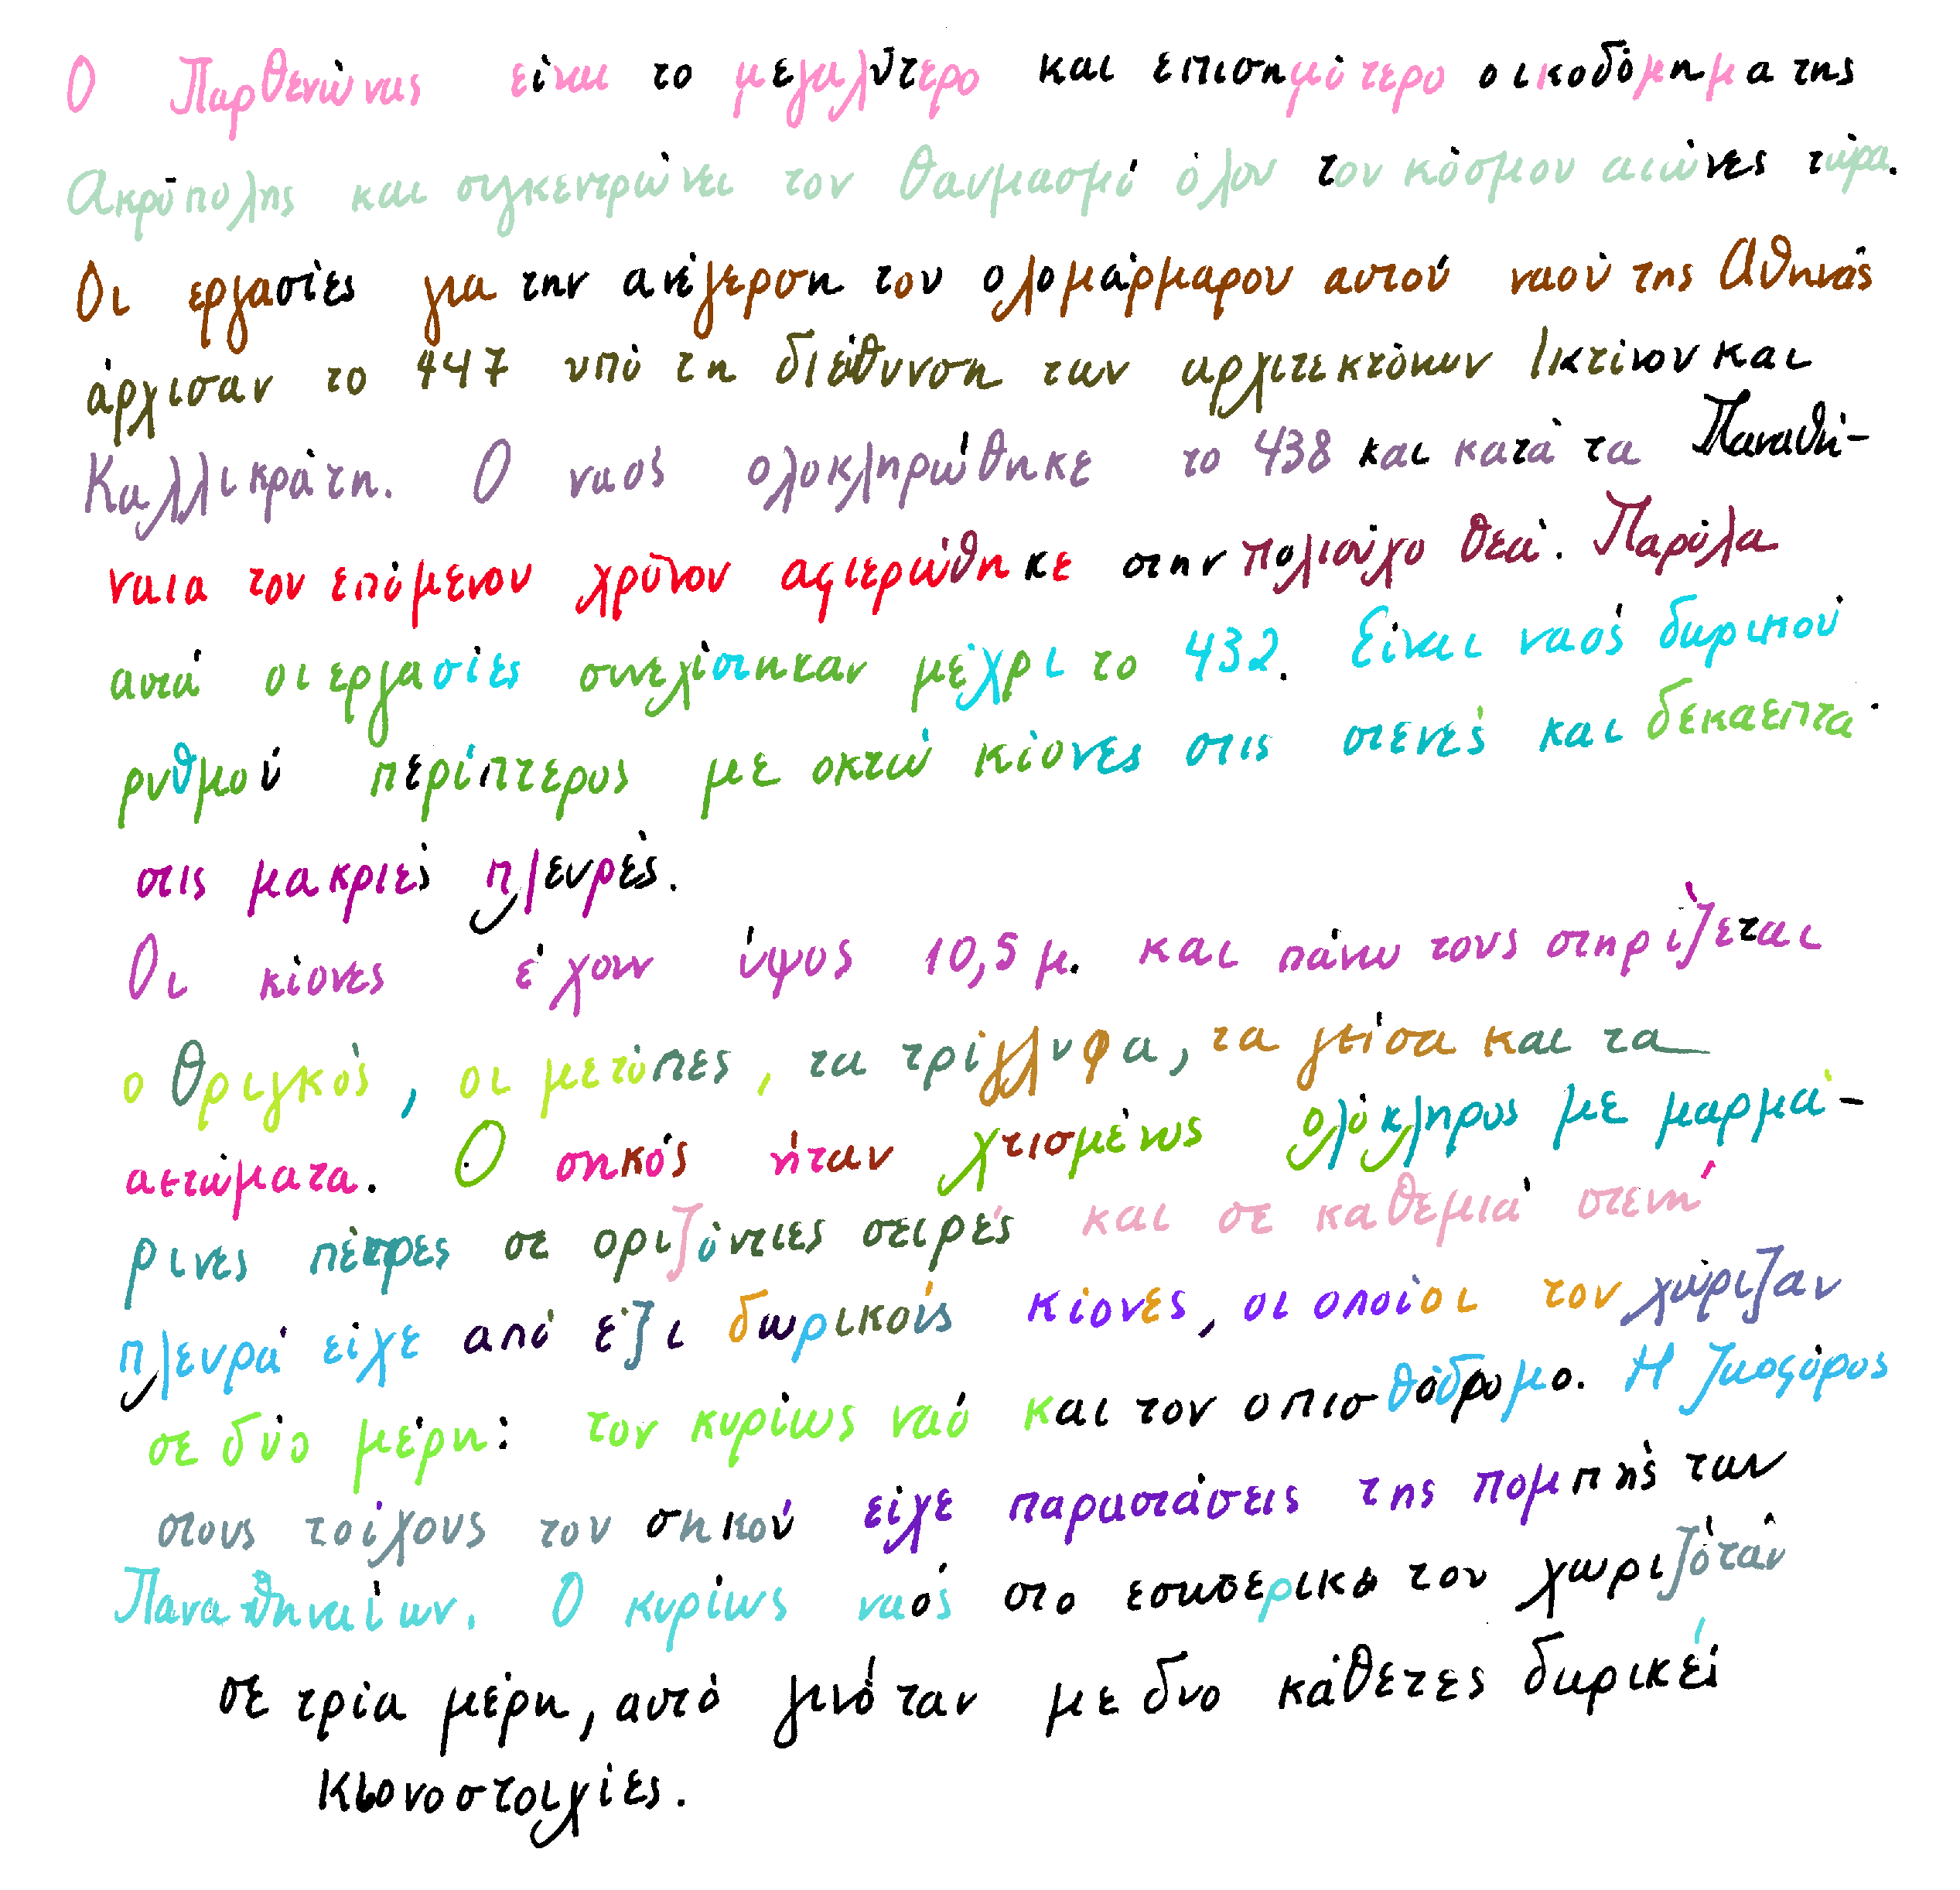 Ο Παρθενώνας είναι το μεγαλύτερο και επισημότερο οικοδόμημα της
Ακρόπολης και συγκεντρώνει τον θαυμασμό όλου του κόσμου αιώνες τώρα.
Οι εργασίες για την ανέγερση του ολομάρμαρου αυτού ναού της Αθηνάς
άρχισαν το 447 υπό τη διεύθυνση των αρχιτεκτόνων Ικτίνου και
Καλλικράτη. Ο ναός ολοκληρώθηκε το 438 και κατά τα Παναθή-
ναια του επόμενου χρόνου αφιερώθηκε στην πολιούχο θεά. Παρόλα
αυτά οι εργασίες συνεχίστηκαν μέχρι το 432. Είναι ναός δωρικού
ρυθμού περίπτερος με οκτώ κίονες στις στενές και δεκαεπτά
στις μακριές πλευρές.
Οι κίονες έχουν ύψος 10,5 μ. και πάνω τους στηρίζεται
ο θριγκός, οι μετόπες, τα τρίγλυφα, τα γείσα και τα
αετώματα. Ο σηκός ήταν χτισμένος ολόκληρος με μαρμά-
ρινες πέτρες σε οριζόντιες σειρές και σε καθεμιά στενή
πλευρά είχε από έξι δωρικούς κίονες, οι οποίοι τον χώριζαν
σε δύο μέρη: τον κυρίως ναό και τον οπισθόδρομο. Η ζωοφόρος
στους τοίχους του σηκού είχε παραστάσεις της πομπής των
Παναθηναίων. Ο κυρίως ναός στο εσωτερικό του χωριζόταν
σε τρία μέρη, αυτό γινόταν με δυο κάθετες δωρικές
κιονοστοιχίες.